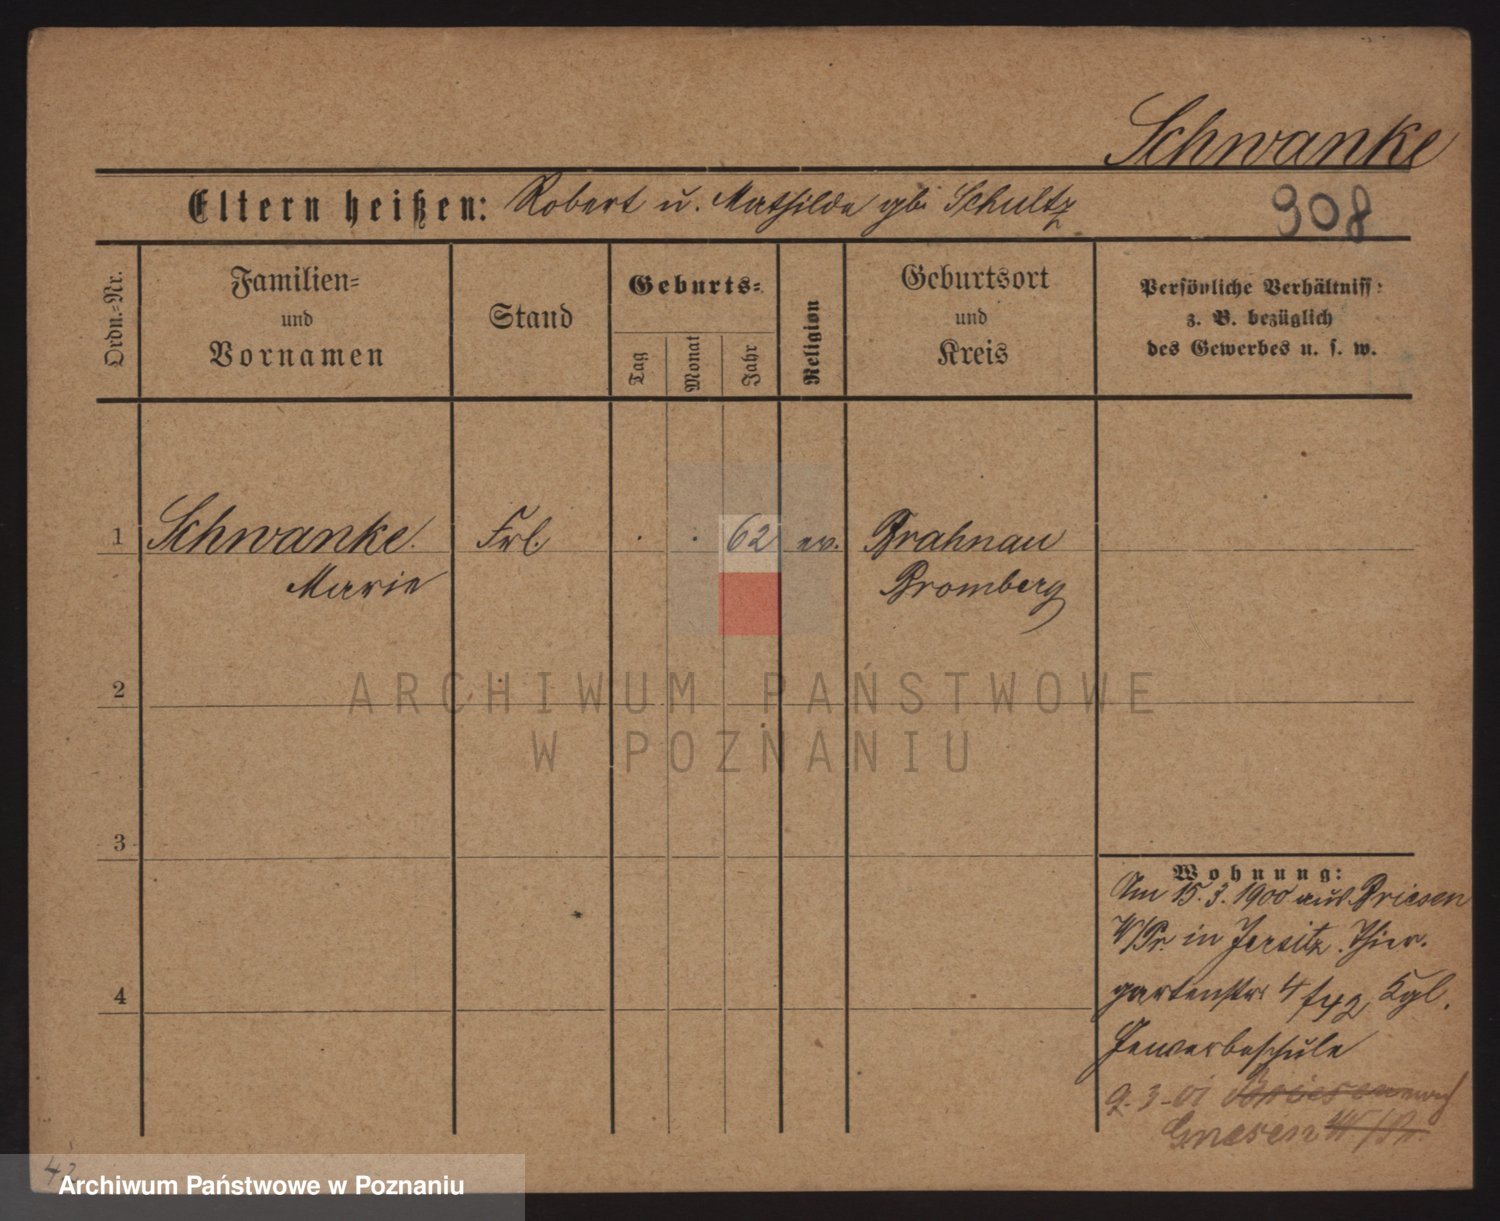 Schwanke
Eltern heißen: Robert u. Mathilde gb. Schultz
908
Ordn.-Nr.
Familien-
und
Vornamen
Stand
Geburts-
Tag
Monat
Jahr
Religion
Geburtsort
und
Kreis
Persönliche Verhältniss:
z. B. bezüglich
des Gewerbes u. s. w.
1 Schwanke. Frl. . . 62 ev. Brahnau
Marie Bromberg
2
ARCHIWUM PAŃSTWOWE
W POZNANIU
3
4
Wohnung:
Am 15.3.1900 aus Briesen
W/Pr. in Jersitz Thier-
gartenstr. 4 Kgl.
Gewerbeschule
9-3-01 Briesen nach
Gnesen W/Pr.
42
Archiwum Państwowe w Poznaniu